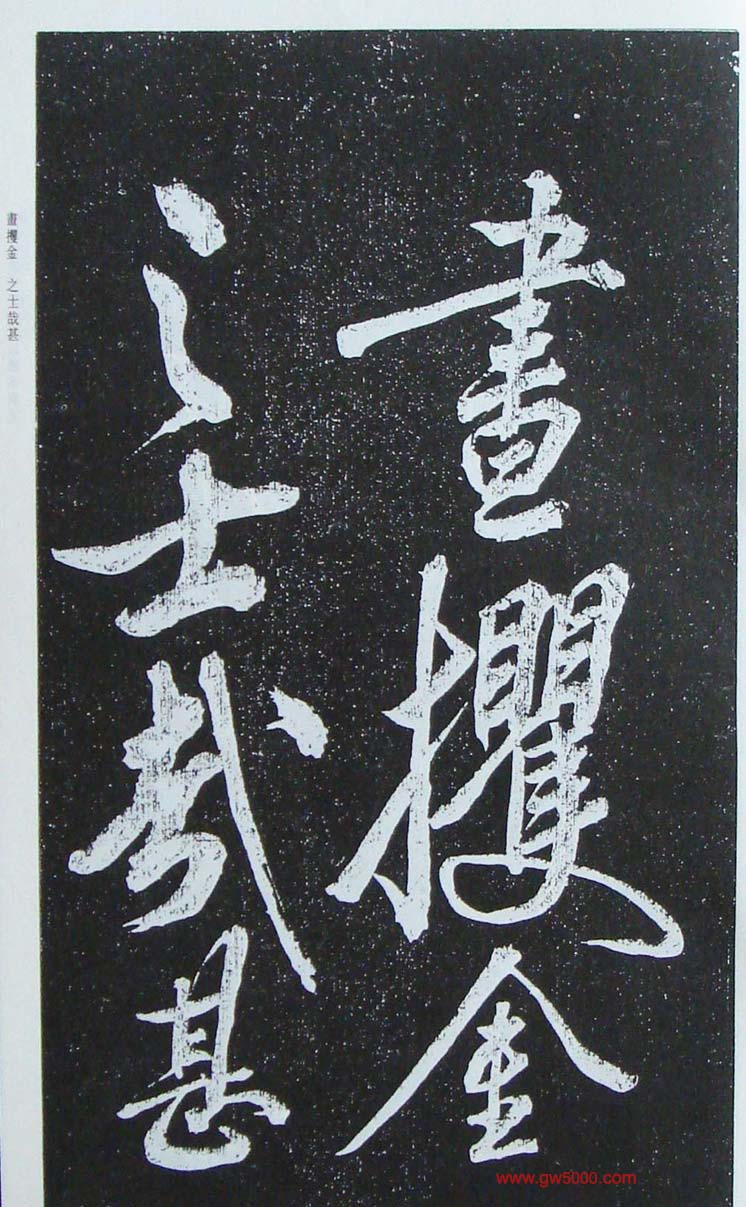 晝攫金
之士哉甚
晝攫金 之士哉甚
www.gw5000.com